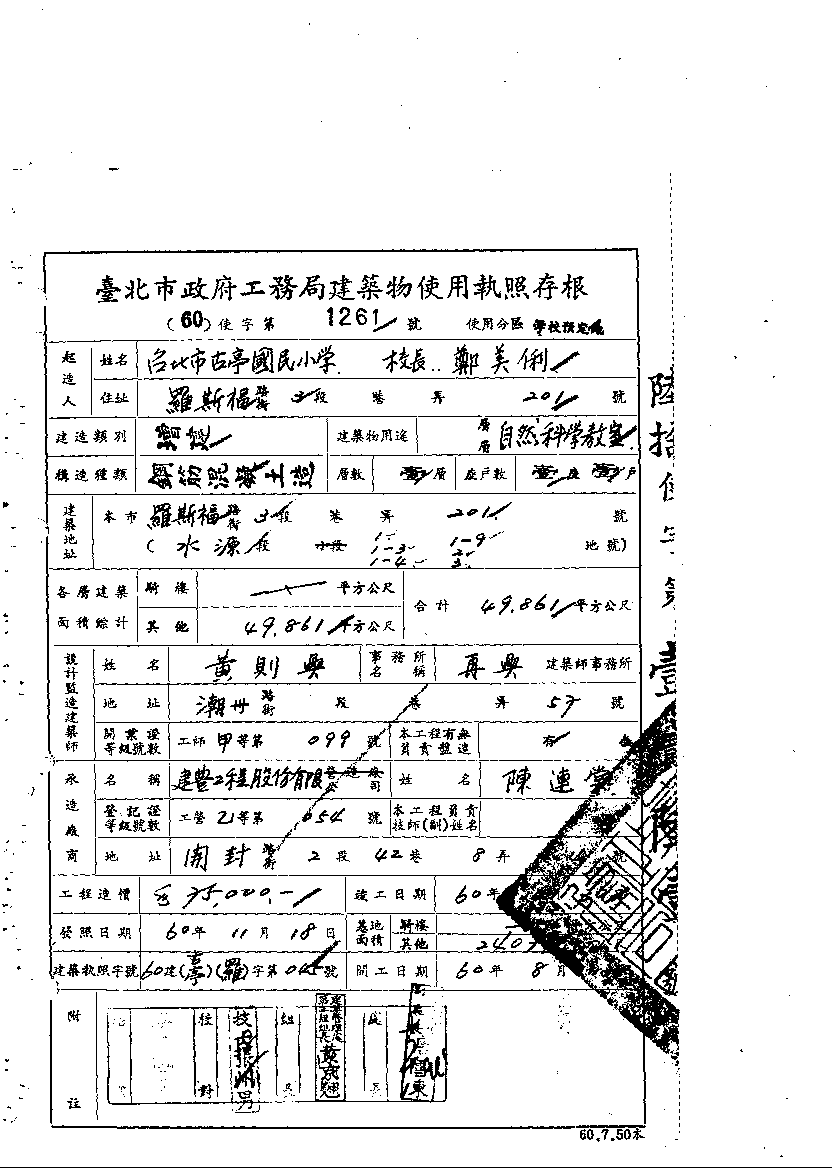 臺北市政府工務局建築物使用執照存根
(60)使字第 1261 號 使用分區 學校預定地
起造人 姓名 台北市古亭國民小学. 校長.. 鄭美俐
住址 羅斯福路街 3段 巷 弄 201 號
建造類別 增建 建築物用途 層層 自然科学教室
構造種類 鋼筋混凝土造 層數 壹層 座戶數 壹座 壹戶
建築地址 本市 羅斯福路街 3段 巷 弄 201. 號
(水源段 小段 1- 1-3 1-4 1-9 2. 3. 地號)
各層建築面積綜計 騎樓 平方公尺 合計 49.861 平方公尺
其他 49.861 平方公尺
設計監造建築師 姓名 黃則興 事務所名稱 再興 建築師事務所
地址 潮州路街 段 巷 弄 57 號
開業證等級號數 工師 甲等第 099 號 本工程有無負責監造 有
承造廠商 名稱 建豐工程股份有限營造廠公司 姓名 陳連堂
登記證等級號數 工營 乙等第 054 號 本工程負責技師(副)姓名
地址 開封路街 2段 42巷 8弄 號
工程造價 75,000.- 竣工日期 60年
發照日期 60年 11月 18日 基地面積 騎樓
其他 2407
建築執照字號 60建(亭)(羅)字第 045 號 開工日期 60年 8月
附註
核對
60.7.50本
陸拾使字第壹